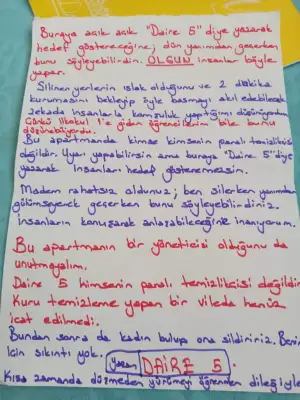 Buraya açık açık "Daire 5" diye yazarak
hedef göstereceğine, dün yanımdan geçerken
bunu söyleyebilirdin. OLGUN insanlar böyle
yapar.
Silinen yerlerin ıslak olduğunu ve 2 dakika
kurumasını bekleyip öyle basmayı akıl edebilecek
zekada insanlarla komşuluk yaptığımı düşünüyordum.
Çünkü ilkokul 1'e giden öğrencilerim bile bunu
düşünebiliyordu.
Bu apartmanda kimse kimsenin paralı temizlikçisi
değildir. Uyarı yapabilirsin ama buraya "Daire 5" diye
yazarak insanları hedef gösteremezsin.
Madem rahatsız oldunuz; ben silerken yanımdan
gülümseyerek geçerken bunu söyleyebilirdiniz.
İnsanların konuşarak anlaşabileceğine inanıyorum.
Bu apartmanın bir yöneticisi olduğunu da
unutmayalım.
Daire 5 kimsenin paralı temizlikçisi değildir.
Kuru temizleme yapan bir vileda henüz
icat edilmedi.
Bundan sonra da kadın bulup ona sildiriniz. Benim
için sıkıntı yok.
Yazan DAİRE 5
Kısa zamanda düşmeden yürümeyi öğrenmen dileğiyle